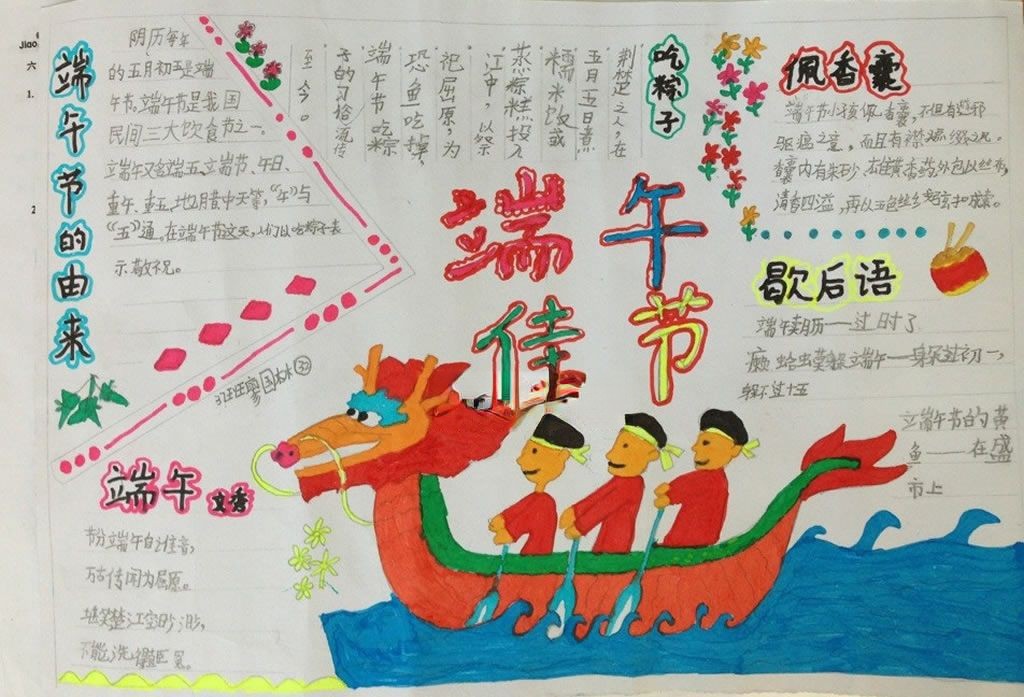 Jiao
六
1.
2
端午节的由来
阴历每年
的五月初五是端
午节。端午节是我国
民间三大饮食节之一。
端午又名端五、端节、午日、
重午、重五、地月昔中天等，“午”与
“五”通。在端午节这天，人们以吃粽子表
示敬祝。
吃粽子
荆楚之人，在
五月五日煮
糯米饭或
蒸粽糕投入
江中，以祭
祀屈原，为
恐鱼吃掉，
端午节吃粽
子的习俗流传
至今。
佩香囊
端午节小孩佩香囊，不但有避邪
驱瘟之意，而且有襟头点缀之风。
香囊内有朱砂、雄黄、香药，外包以丝布，
清香四溢，再以五色丝线弦扣成索。
端午佳节
歇后语
端午卖月历——过时了
癞蛤蟆躲端午——躲过初一，
躲不过十五
立端午节的黄
鱼——在盛
市上
37班廖国林㉜
端午 文秀
节分端午自谁言，
万古传闻为屈原。
堪笑楚江空渺渺，
不能洗得直臣冤。